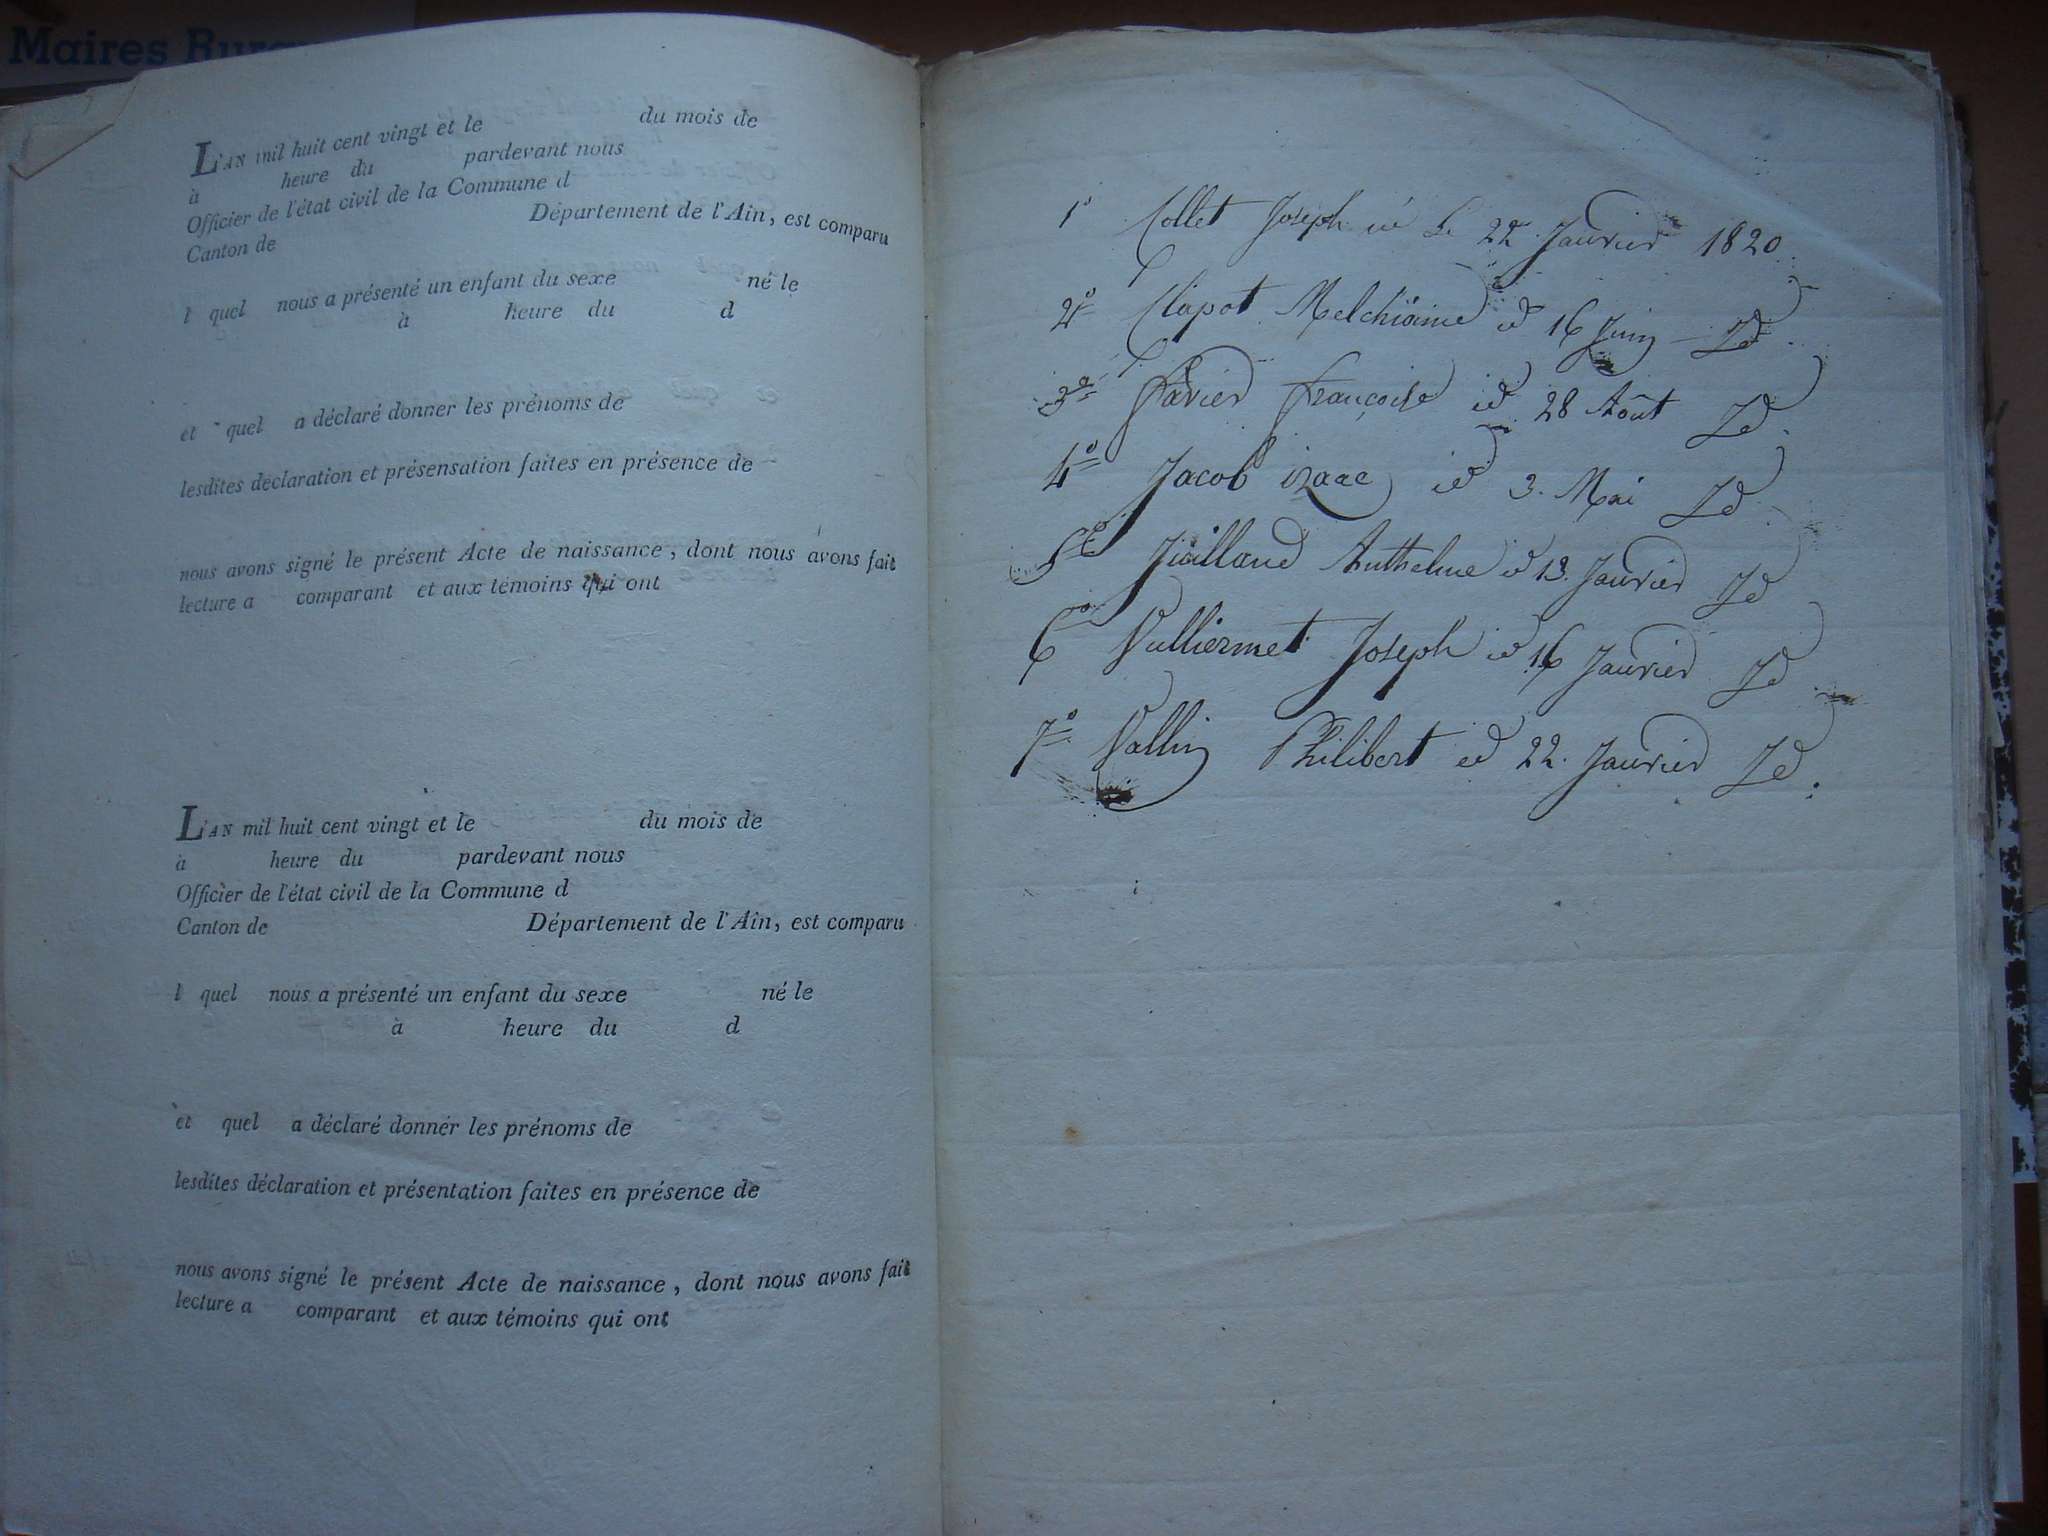 Maires
L'AN mil huit cent vingt et le du mois de
à heure du pardevant nous
Officier de l'état civil de la Commune d
Canton de Département de l'Ain, est comparu
l quel nous a présenté un enfant du sexe né le
à heure du d
et quel a déclaré donner les prénoms de
lesdites déclaration et présensation faites en présence de
nous avons signé le présent Acte de naissance, dont nous avons fait
lecture a comparant et aux témoins qui ont
L'AN mil huit cent vingt et le du mois de
à heure du pardevant nous
Officier de l'état civil de la Commune d
Canton de Département de l'Ain, est comparu
l quel nous a présenté un enfant du sexe né le
à heure du d
et quel a déclaré donner les prénoms de
lesdites déclaration et présentation faites en présence de
nous avons signé le présent Acte de naissance, dont nous avons fait
lecture a comparant et aux témoins qui ont
1° Collet Joseph né le 22 Janvier 1820
2° Clapot id 16 Juin Id
3° favier françoise id 28 Août Id
4° Jacob izaac id 3. Mai Id
5° Juilland Anthelme id 13. Janvier Id
6° Vulliermet Joseph id 16 Janvier Id
7° Vallin Philibert id 22. Janvier Id.